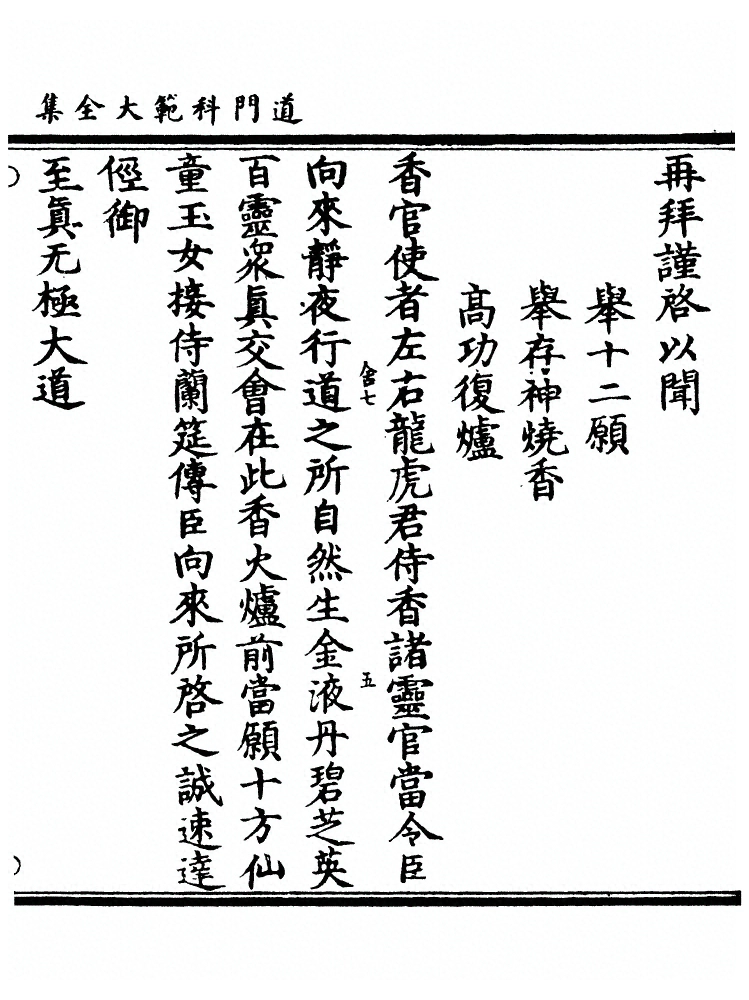 道門科範大全集
再拜謹啓以聞
舉十二願
舉存神燒香
高功復爐
香官使者左右龍虎君侍香諸靈官當令臣
舍七
五
向來靜夜行道之所自然生金液丹碧芝英
百靈衆眞交會在此香火爐前當願十方仙
童玉女接侍蘭筵傳臣向來所啓之誠速達
徑御
至眞无極大道